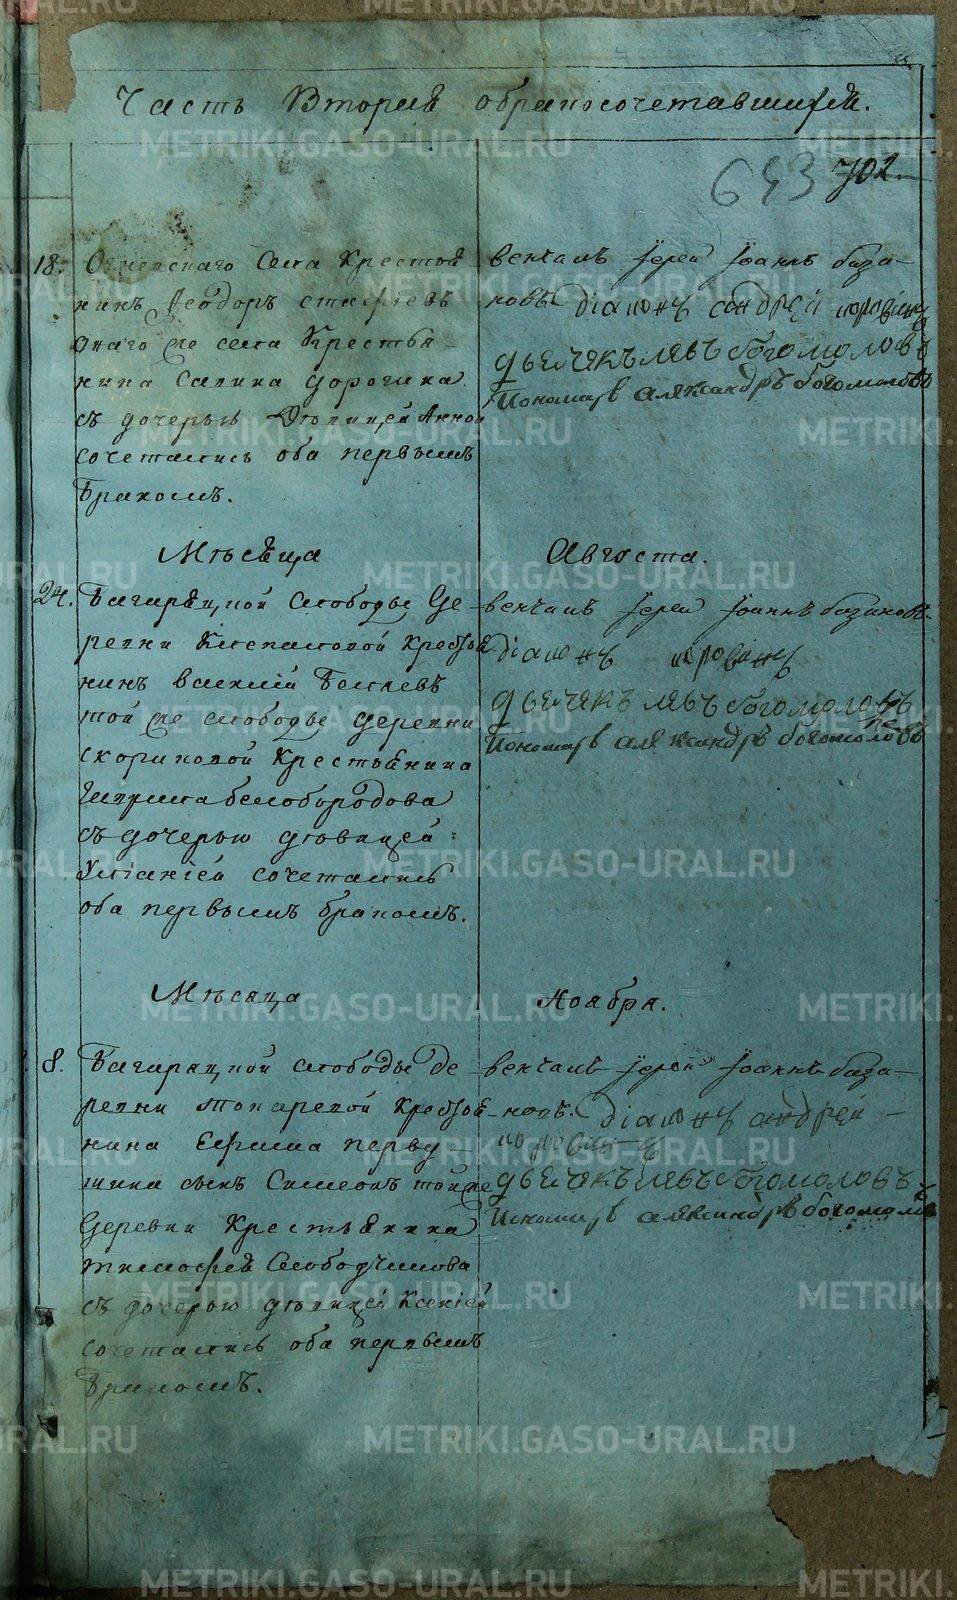 Часть Вторая обракосочетавшихся.
643 702
18. Огневскаго Села Крестья
нинъ Ѳеодоръ
онаго же села Крестья-
нина Савина Дорогина
съ дочерью Дѣвицей Анной
сочетались оба первымъ
бракомъ.
венчалъ Іерей Іоаннъ база-
новъ діаконъ андрей
дьячекъ левъ богомоловъ
Пономарь александръ богомоловъ
Мѣсяца Августа.
24. Багаряцкой слободы Де-
ревни Крестья
нинъ василій Беляевъ
той же слободы деревни
скориновой Крестьянина
белобородова
съ дочерью дѣвицей
Уліаніей сочетались
оба первымъ бракомъ.
венчалъ Іерей Іоаннъ базановъ
діаконъ
дьячекъ левъ богомоловъ
Пономарь александръ богомоловъ
Мѣсяца Ноября.
8. Багаряцкой слободы де
ревни токаревой Крестья
нина Ефима перву-
шина сынъ Симеонъ той же
Деревни Крестьянина
тимофея Слободчикова
съ дочерью дѣвицей Ксеніей
сочетались оба первымъ
бракомъ.
венчалъ Іерей Іоаннъ база-
новъ. діаконъ андрей
дьячекъ левъ богомоловъ
Пономарь александръ богомоловъ
METRIKI.GASO-URAL.RU